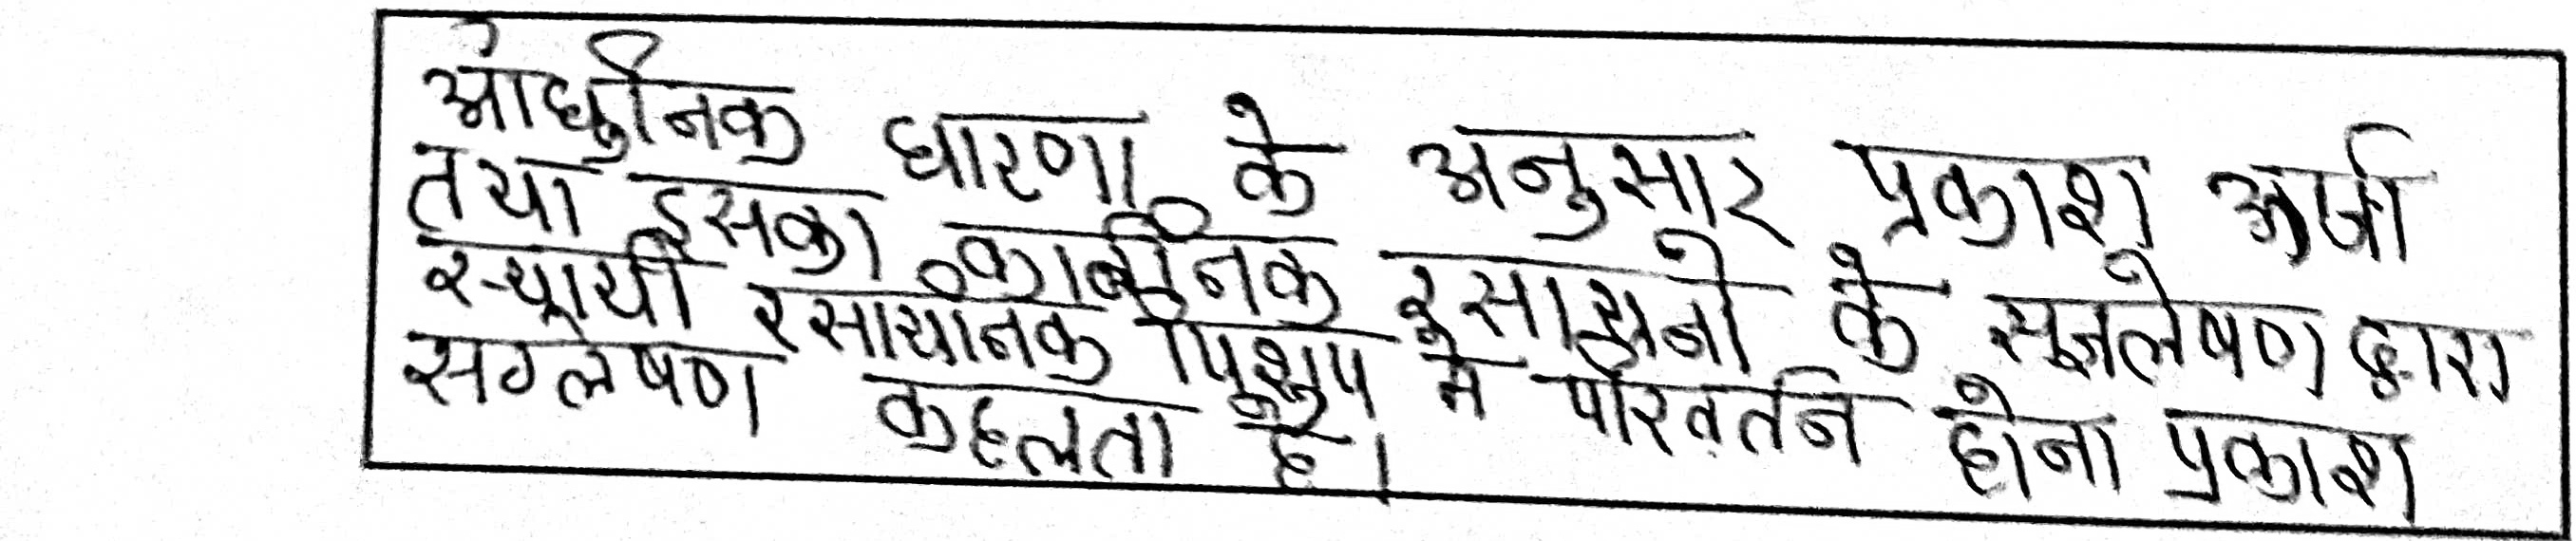 आधुनिक धारणा के अनुसार प्रकाश ऊर्जा
तथा इसका कार्बनिक रसायनो के सश्लेषण द्वारा
स्थायी रसायनिक में परिवर्तन होना प्रकाश
सश्लेषण कहलता है।